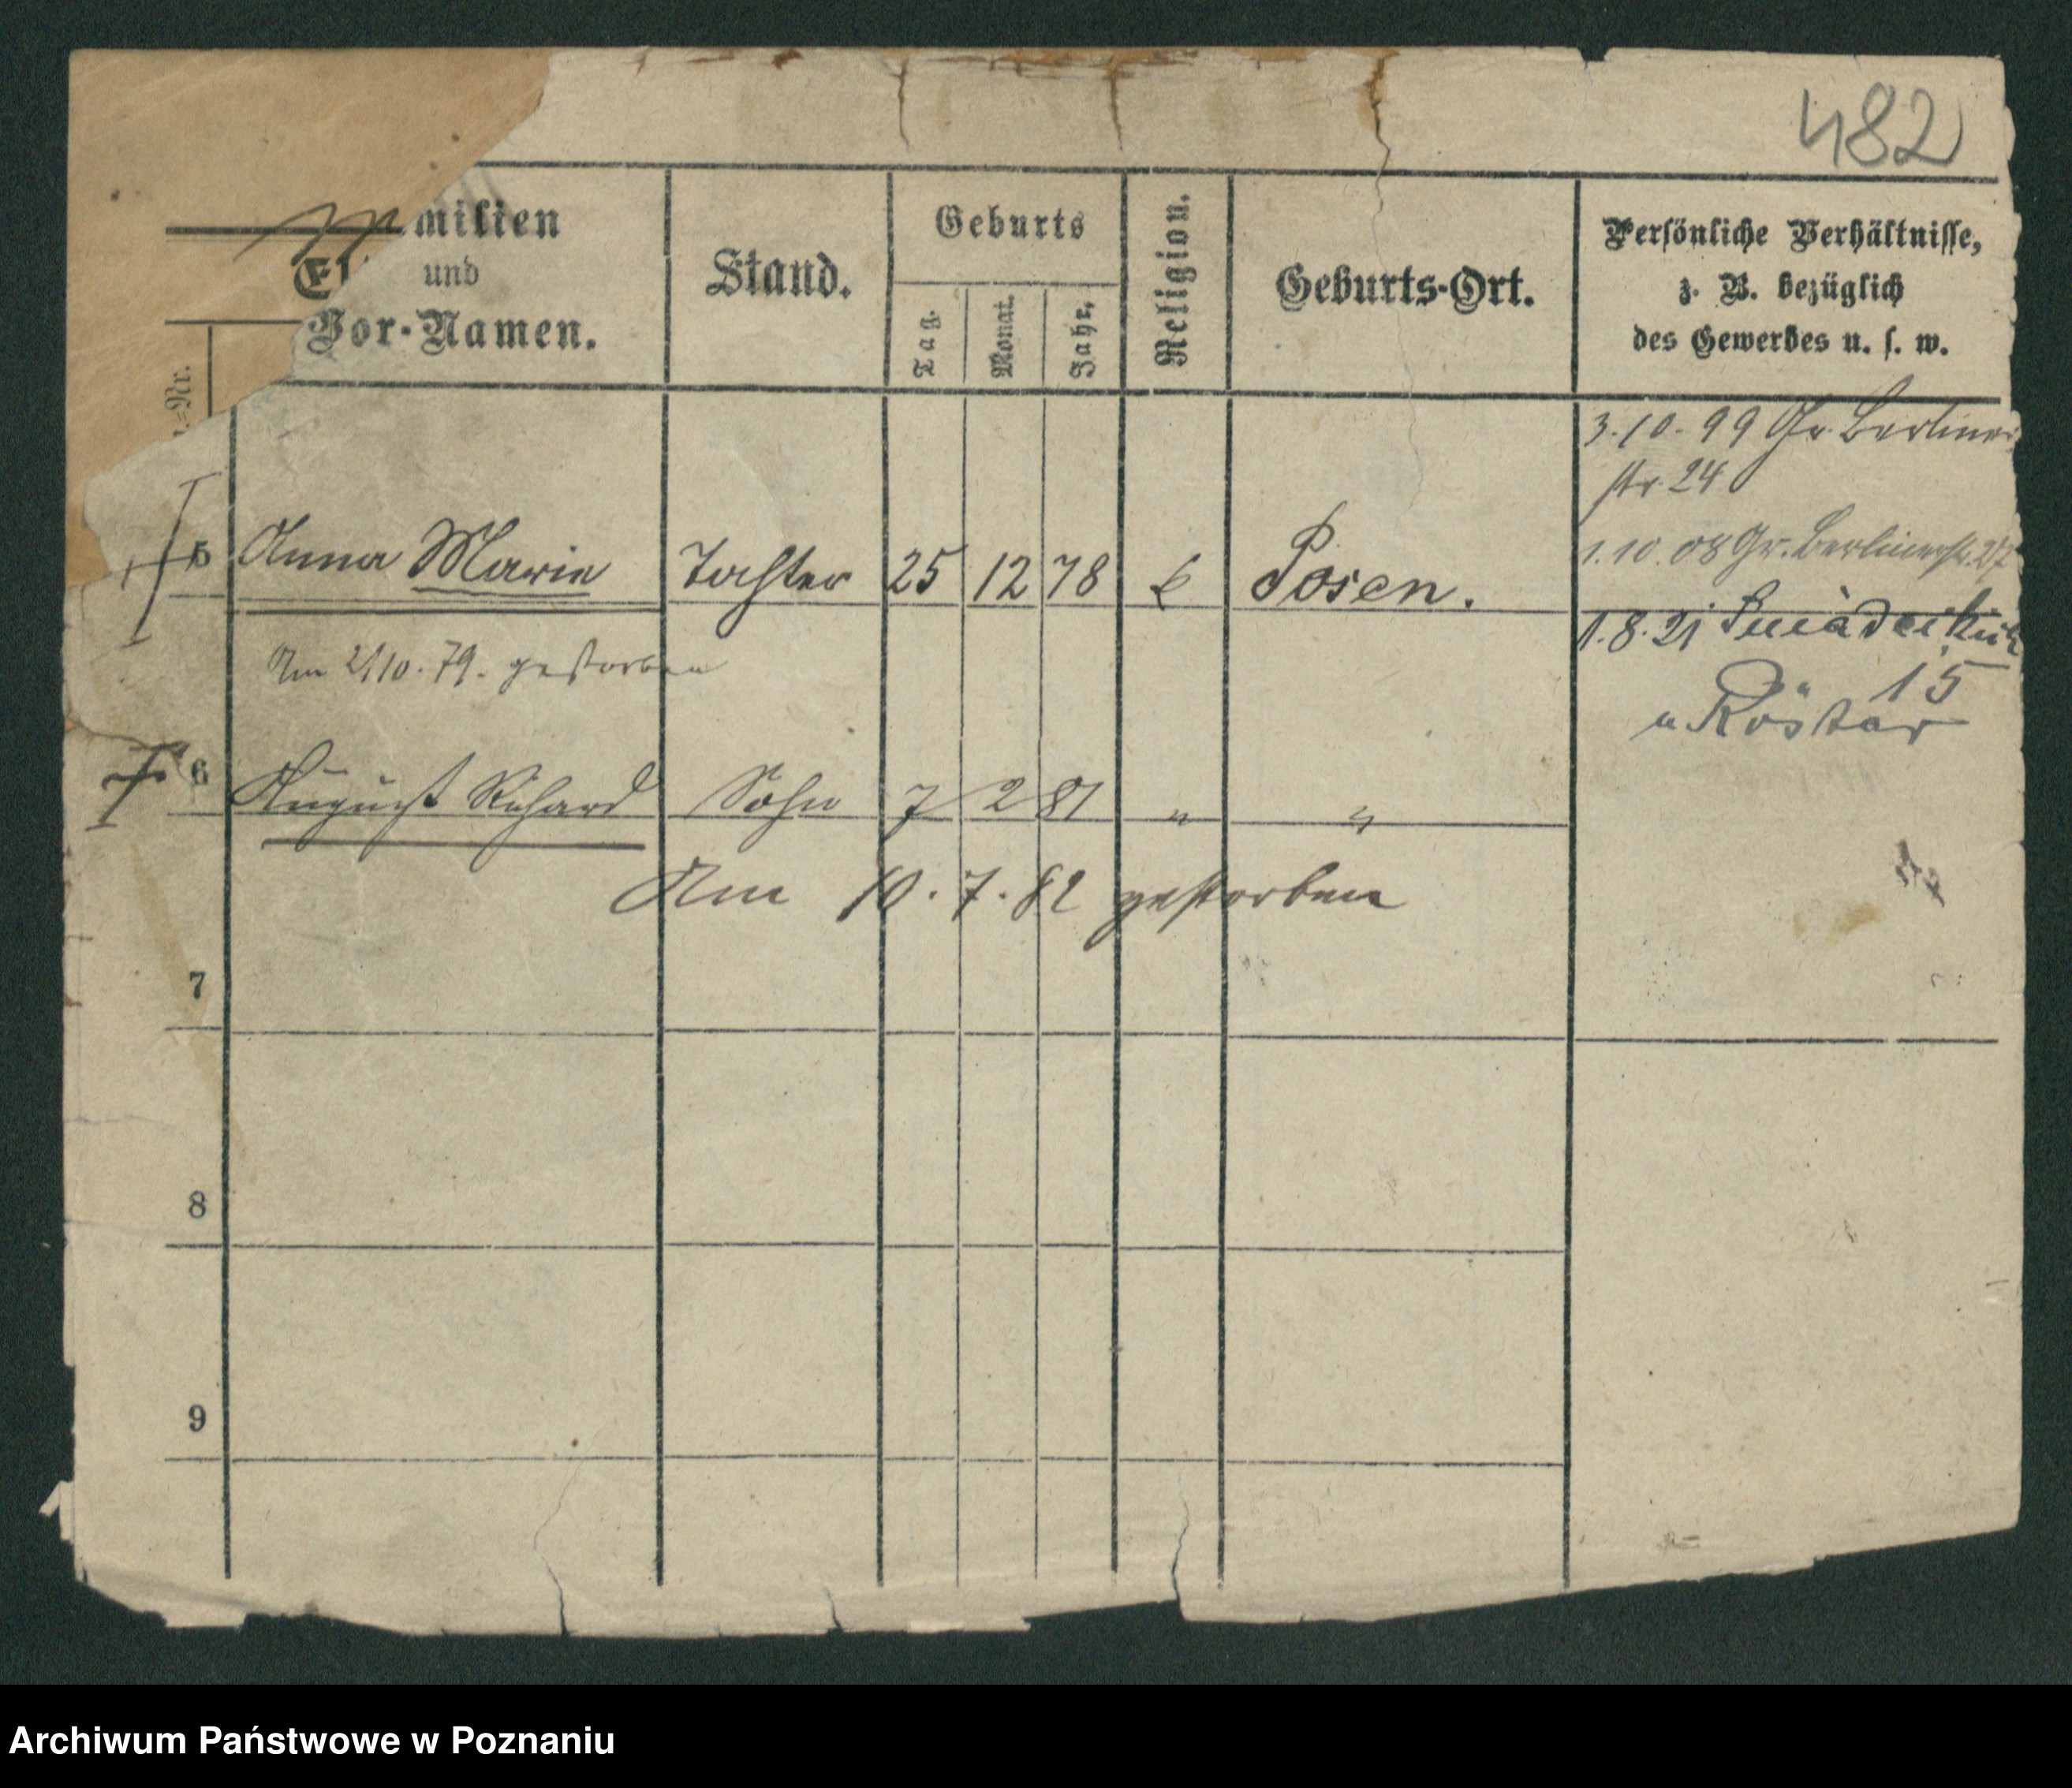 482
milien
und
Vor-Namen.
Stand.
Geburts
Tag.
Monat.
Jahr.
Religion.
Geburts-Ort.
Persönliche Verhältnisse,
z. B. bezüglich
des Gewerbes u. s. w.
-Nr.
3.10.99 Gr. Berliner
str. 24
5 Anna Marie Tochter 25 12 78 Posen.
1.10.08 Gr. Berlinerstr. 27
1.8.21
15
Am 2/10.79. gestorben
u.
6 August Richard Sohn 7 2 81 " "
Am 10.7.82 gestorben
7
8
9
Archiwum Państwowe w Poznaniu